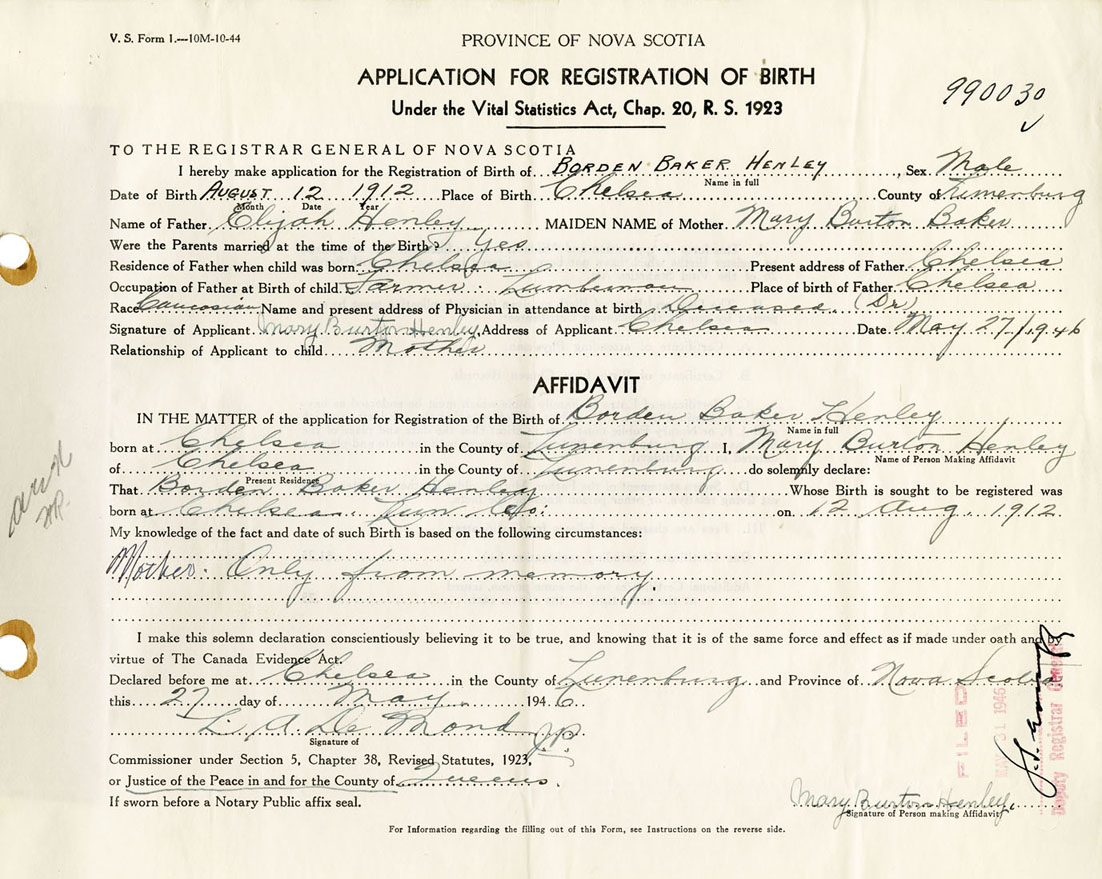 V. S. Form 1.—10M-10-44
PROVINCE OF NOVA SCOTIA
APPLICATION FOR REGISTRATION OF BIRTH
Under the Vital Statistics Act, Chap. 20, R. S. 1923
990030
TO THE REGISTRAR GENERAL OF NOVA SCOTIA
I hereby make application for the Registration of Birth of BORDEN BAKER HENLEY, Sex Male
Name in full
Date of Birth AUGUST 12 1912 Place of Birth Chelsea County of Lunenburg
Month Date Year
Name of Father Elijah Henley MAIDEN NAME of Mother Mary Burton Baker
Were the Parents married at the time of the Birth? Yes
Residence of Father when child was born Chelsea Present address of Father Chelsea
Occupation of Father at Birth of child Farmer Lumberman Place of birth of Father Chelsea
Race Caucosian Name and present address of Physician in attendance at birth Deceased. (Dr)
Signature of Applicant Mary Burton Henley, Address of Applicant Chelsea Date May 27/1946
Relationship of Applicant to child Mother
AFFIDAVIT
IN THE MATTER of the application for Registration of the Birth of Borden Baker Henley
Name in full
born at Chelsea in the County of Lunenburg I, Mary Burton Henley
Name of Person Making Affidavit
of Chelsea in the County of Lunenburg do solemnly declare:
Present Residence
That Borden Baker Henley Whose Birth is sought to be registered was
born at Chelsea. Lun Co. on 12 Aug. 1912
My knowledge of the fact and date of such Birth is based on the following circumstances:
Mother. Only from memory.
I make this solemn declaration conscientiously believing it to be true, and knowing that it is of the same force and effect as if made under oath and by
virtue of The Canada Evidence Act.
Declared before me at Chelsea in the County of Lunenburg and Province of Nova Scotia
this 27 day of May 1946.
L. A. De Mond J.P.
Signature of
Commissioner under Section 5, Chapter 38, Revised Statutes, 1923,
or Justice of the Peace in and for the County of Queens.
If sworn before a Notary Public affix seal.
Mary Burton Henley.
Signature of Person making Affidavit
For Information regarding the filling out of this Form, see Instructions on the reverse side.
FILED
MAY 31 1946
Deputy Registrar General